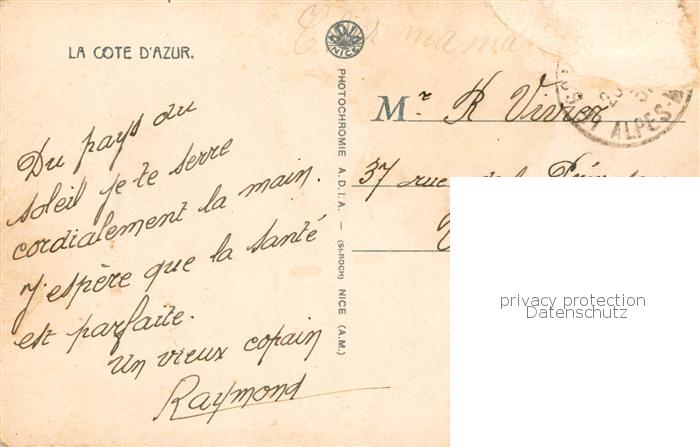 LA COTE D'AZUR.
Du pays du
soleil je te serre
cordialement la main.
J'espère que la santé
est parfaite.
Un vieux copain
Raymond
ADIA
NICE
PHOTOCHROMIE A.D.I.A. — (St-ROCH) NICE (A.M.)
ALPES-M
Mr R Vivier
37 rue de la
privacy protection
Datenschutz